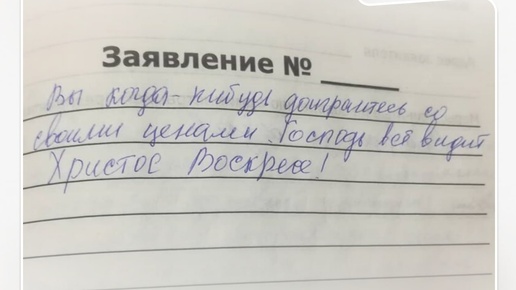 Заявление № ____
Вы когда-нибудь доиграетесь со
своими ценами. Господь всё видит
Христос Воскресе!